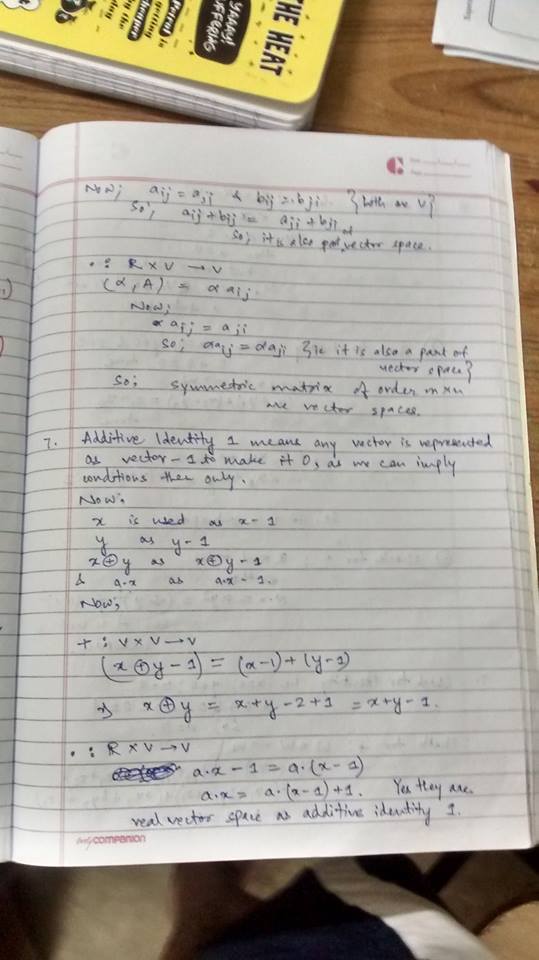 THE HEAT
SUFFERING
Now; aij = aji & bij = bji } both are V}
So; aij + bij = aji + bji
So; it is also part of vector space.
· : R × V → V
(α, A) = α aij
Now;
α aij = aji
So; αaij = αaji {ie it is also a part of
vector space}
So; symmetric matrix of order n×n
are vector spaces.
7. Additive Identity 1 means any vector is represented
as vector - 1 to make it 0, as we can imply
conditions then only.
Now;
x is used as x-1
y as y-1
x⊕y as x⊕y-1
& a.x as a.x-1.
Now;
+ : V × V → V
(x⊕y-1) = (x-1)+(y-1)
⇒ x⊕y = x+y-2+1 = x+y-1.
· : R × V → V
a.x-1 = a.(x-1)
a.x = a.(x-1)+1. Yes they are
real vector space as additive identity 1.
COMPANION